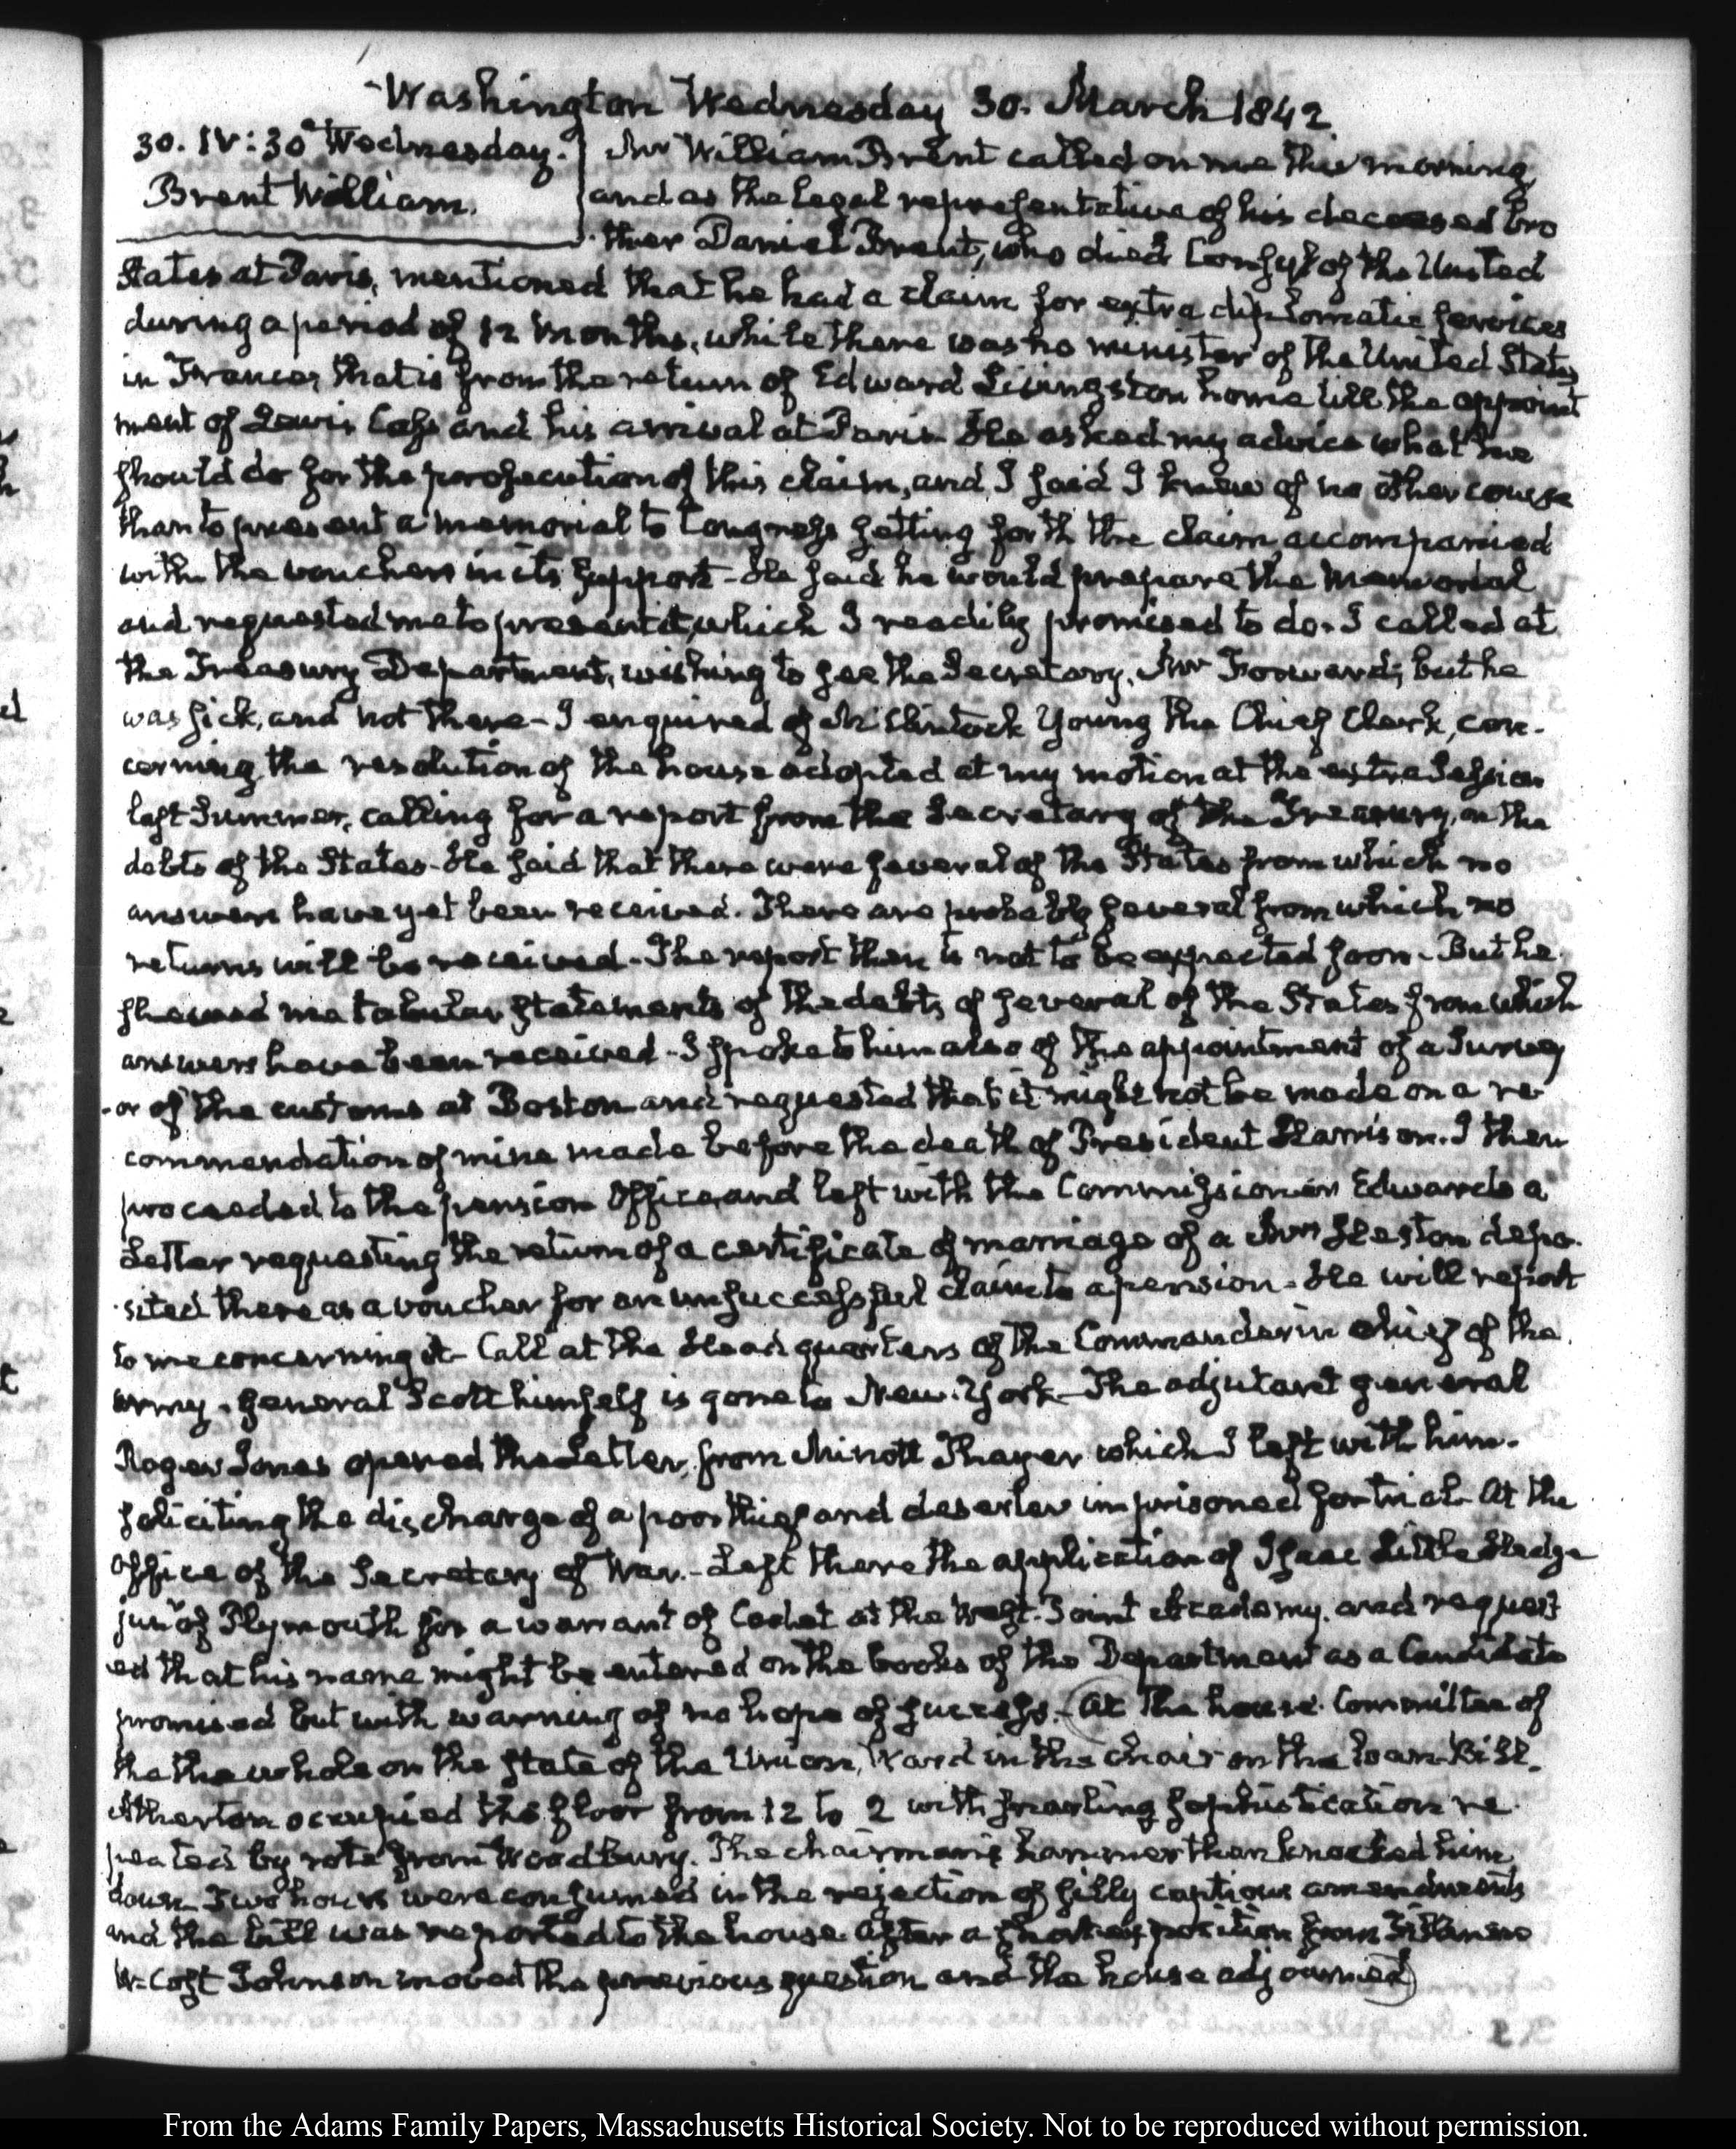 Washington Wednesday 30. March 1842.
30. IV:30 Wednesday.
Brent William.
Mr William Brent called on me this morning
and as the legal representative of his deceased bro
ther Daniel Brent, who died Consul of the United
States at Paris, mentioned that he had a claim for extra diplomatic services
during a period of 12 months, while there was no minister of the United States
in France, that is from the return of Edward Livingston home till the appoint
ment of Lewis Cass and his arrival at Paris. He asked my advice what he
should do for the prosecution of this claim, and I said I knew of no other course
than to present a memorial to Congress setting forth the claim, accompanied
with the vouchers in its support - He said he would prepare the memorial
and requested me to present it, which I readily promised to do. I called at
the Treasury Department, wishing to see the Secretary, Mr Forward; but he
was sick, and not there - I enquired of McClintock Young the Chief Clerk, con-
cerning the resolution of the house adopted at my motion at the extra Session
last Summer, calling for a report from the Secretary of the Treasury, on the
debts of the States - He said that there were several of the States from which no
answers have yet been received. There are probably several from which no
returns will be received - The report then is not to be expected soon - But he
shewed me tabular statements of the debts of several of the States from which
answers have been received - I spoke to him also of the appointment of a Survey
-or of the customs at Boston and requested that it might not be made on a re
commendation of mine made before the death of President Harrison. I then
proceeded to the pension Office, and left with the Commissioner Edwards a
Letter requesting the return of a certificate of marriage of a Mrs Heston depo-
sited there as a voucher for an unsuccessful claim to a pension - He will report
to me concerning it - Call at the Head quarters of the Commander in chief of the
army - general Scott himself is gone to New-York - The adjutant general
Roger Jones opened the Letter, from Minott Thayer which I left with him -
soliciting the discharge of a poor thief and deserter imprisoned for trial - At the
Office of the Secretary of War - Left there the application of Isaac Little Hedge
junr of Plymouth for a warrant of Cadet at the West-Point Academy, and request
ed that his name might be entered on the books of the Department as a Candidate
promised but with warning of no hope of success. - (At the house. Committee of
the the whole on the state of the Union, Ward in the chair on the Loan-Bill.
Atherton occupied the floor from 12 to 2 with snarling sophistication re
peated by rote from Woodbury. The chairman's hammer then knocked him
down - Two hours were consumed in the rejection of silly captious amendments
and the bill was reported to the house. After a short exposition from Fillmore
W. Cost Johnson moved the previous question and the house adjourned)
From the Adams Family Papers, Massachusetts Historical Society. Not to be reproduced without permission.